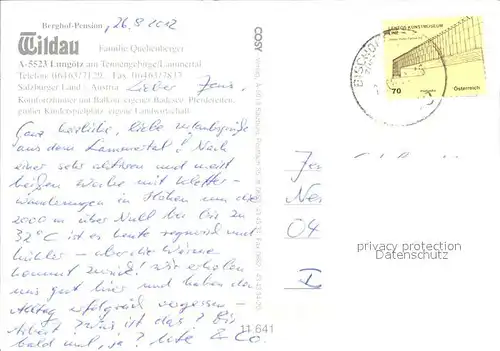 Berghof-Pension, 26.8.2012
Wildau
Familie Quehenberger
A-5523 Lungötz am Tennengebirge/Lammertal
Telefon 06463/7129, Fax 06463/7817
Salzburger Land / Austria
Lieber Jens,
Komfortzimmer mit Balkon, eigener Badesee, Pferdereiten,
großer Kinderspielplatz, eigene Landwirtschaft
Ganz herzliche, liebe Urlaubsgrüße
aus dem Lammertal! Nach
einer sehr aktiven und meist
heißen Woche mit Kletter-
Wanderungen in Höhen um die
2000 m über Null bei bis zu
32°C ist es heute regnerisch und
kühler – aber die Wärme
kommt zurück! Wir erholen
uns gut hier und haben den
Alltag erfolgreich vergessen –
Arbeit? Was ist das? Bis
bald mal, ja? & Co.
COSY
11 641
LENTOS KUNSTMUSEUM
70
Österreich
BISCHO
Jen
Ne
04
D
privacy protection
Datenschutz